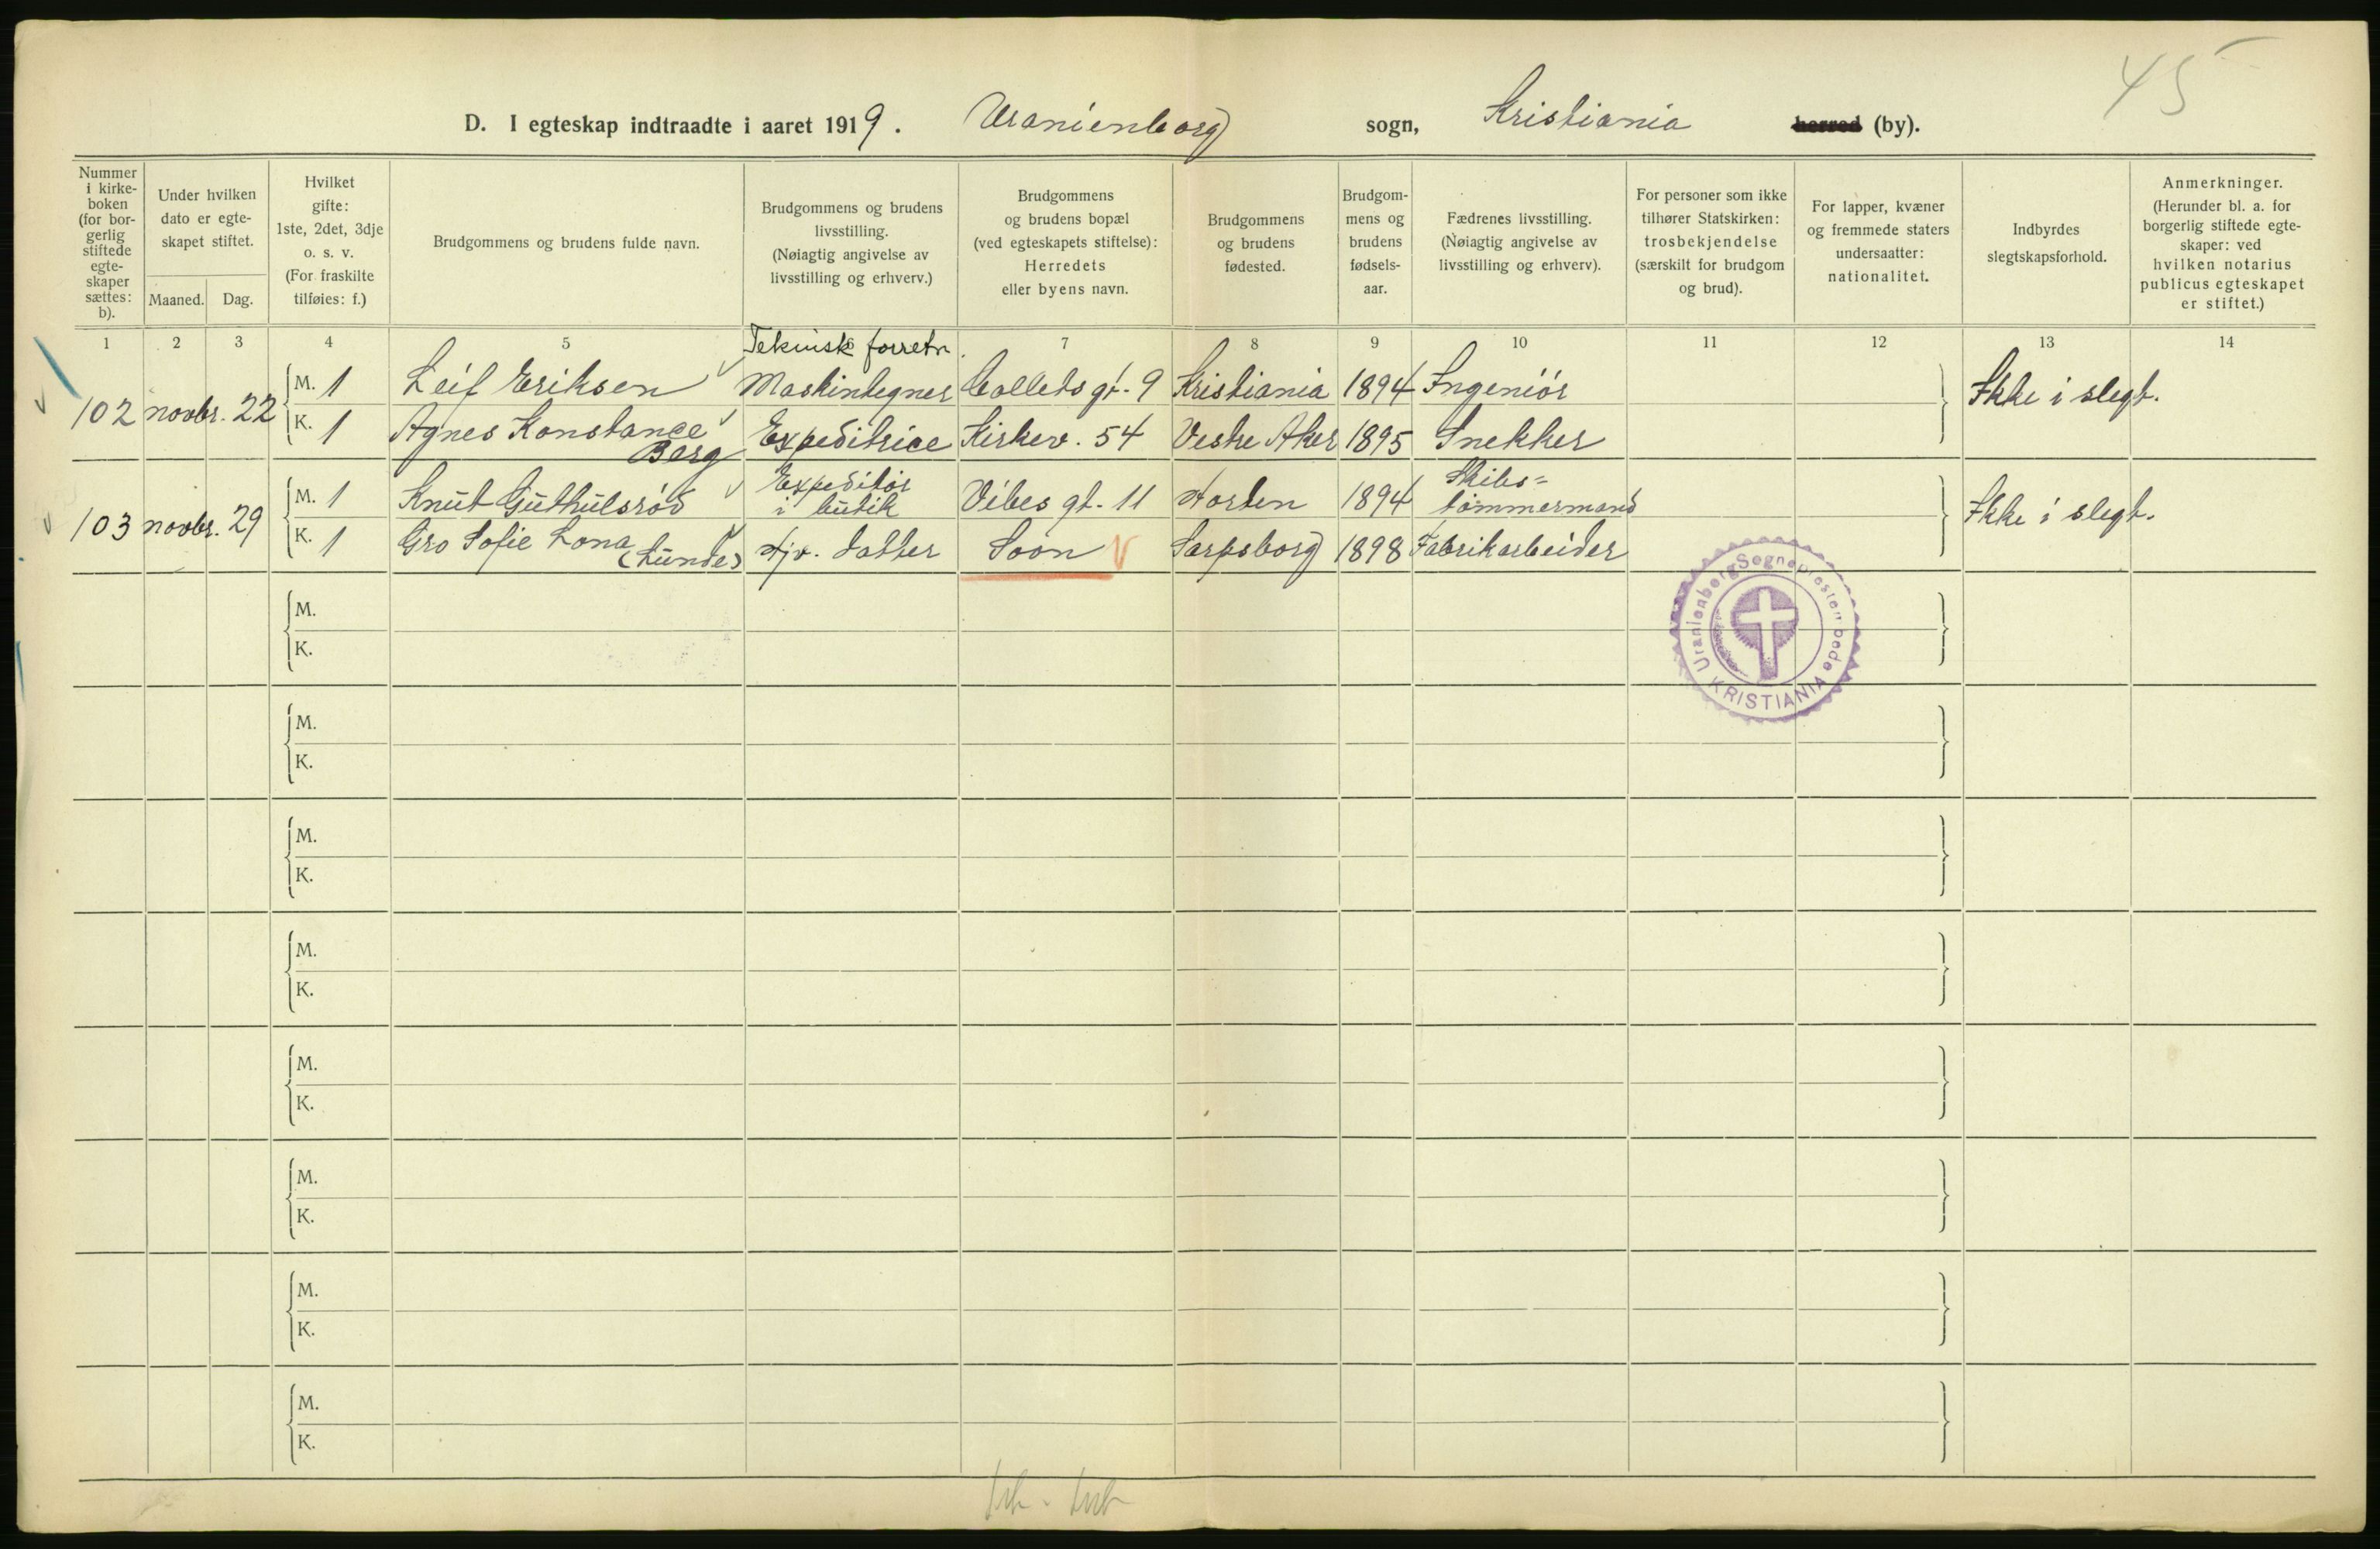 45
D. I egteskap indtraadte i aaret 1919. Uranienborg sogn, Kristiania herred (by).
Nummer i kirke-boken (for bor-gerlig stiftede egte-skaper sættes: b).
Under hvilken dato er egte-skapet stiftet.
Maaned. Dag.
Hvilket gifte: 1ste, 2det, 3dje o. s. v. (For fraskilte tilføies: f.)
Brudgommens og brudens fulde navn.
Brudgommens og brudens livsstilling. (Nøiagtig angivelse av livsstilling og erhverv.)
Brudgommens og brudens bopæl (ved egteskapets stiftelse): Herredets eller byens navn.
Brudgommens og brudens fødested.
Brudgom-mens og brudens fødsels-aar.
Fædrenes livsstilling. (Nøiagtig angivelse av livsstilling og erhverv).
For personer som ikke tilhører Statskirken: trosbekjendelse (særskilt for brudgom og brud).
For lapper, kvæner og fremmede staters undersaatter: nationalitet.
Indbyrdes slegtskapsforhold.
Anmerkninger. (Herunder bl. a. for borgerlig stiftede egte-skaper: ved hvilken notarius publicus egteskapet er stiftet.)
1 2 3 4 5 6 7 8 9 10 11 12 13 14
Teknisk forretn.
102 novbr. 22 M. 1 Leif Eriksen Maskintegner Colletts gt. 9 Kristiania 1894 Ingeniör Ikke i slegt.
K. 1 Agnes Konstance Berg Expeditrice Kirkev. 54 Vestre Aker 1895 Snekker
103 novbr. 29 M. 1 Knut Guthulsrød Expeditør i butik Vibes gt. 11 Horten 1894 Skibs= tømmermand Ikke i slegt.
K. 1 Gro Sofie Lona (Lunde) Hjv. datter Soon Sarpsborg 1898 Fabrikarbeider
Uranienborg Sogneprestembede
KRISTIANIA
M.
K.
M.
K.
M.
K.
M.
K.
M.
K.
M.
K.
M.
K.
M.
K.